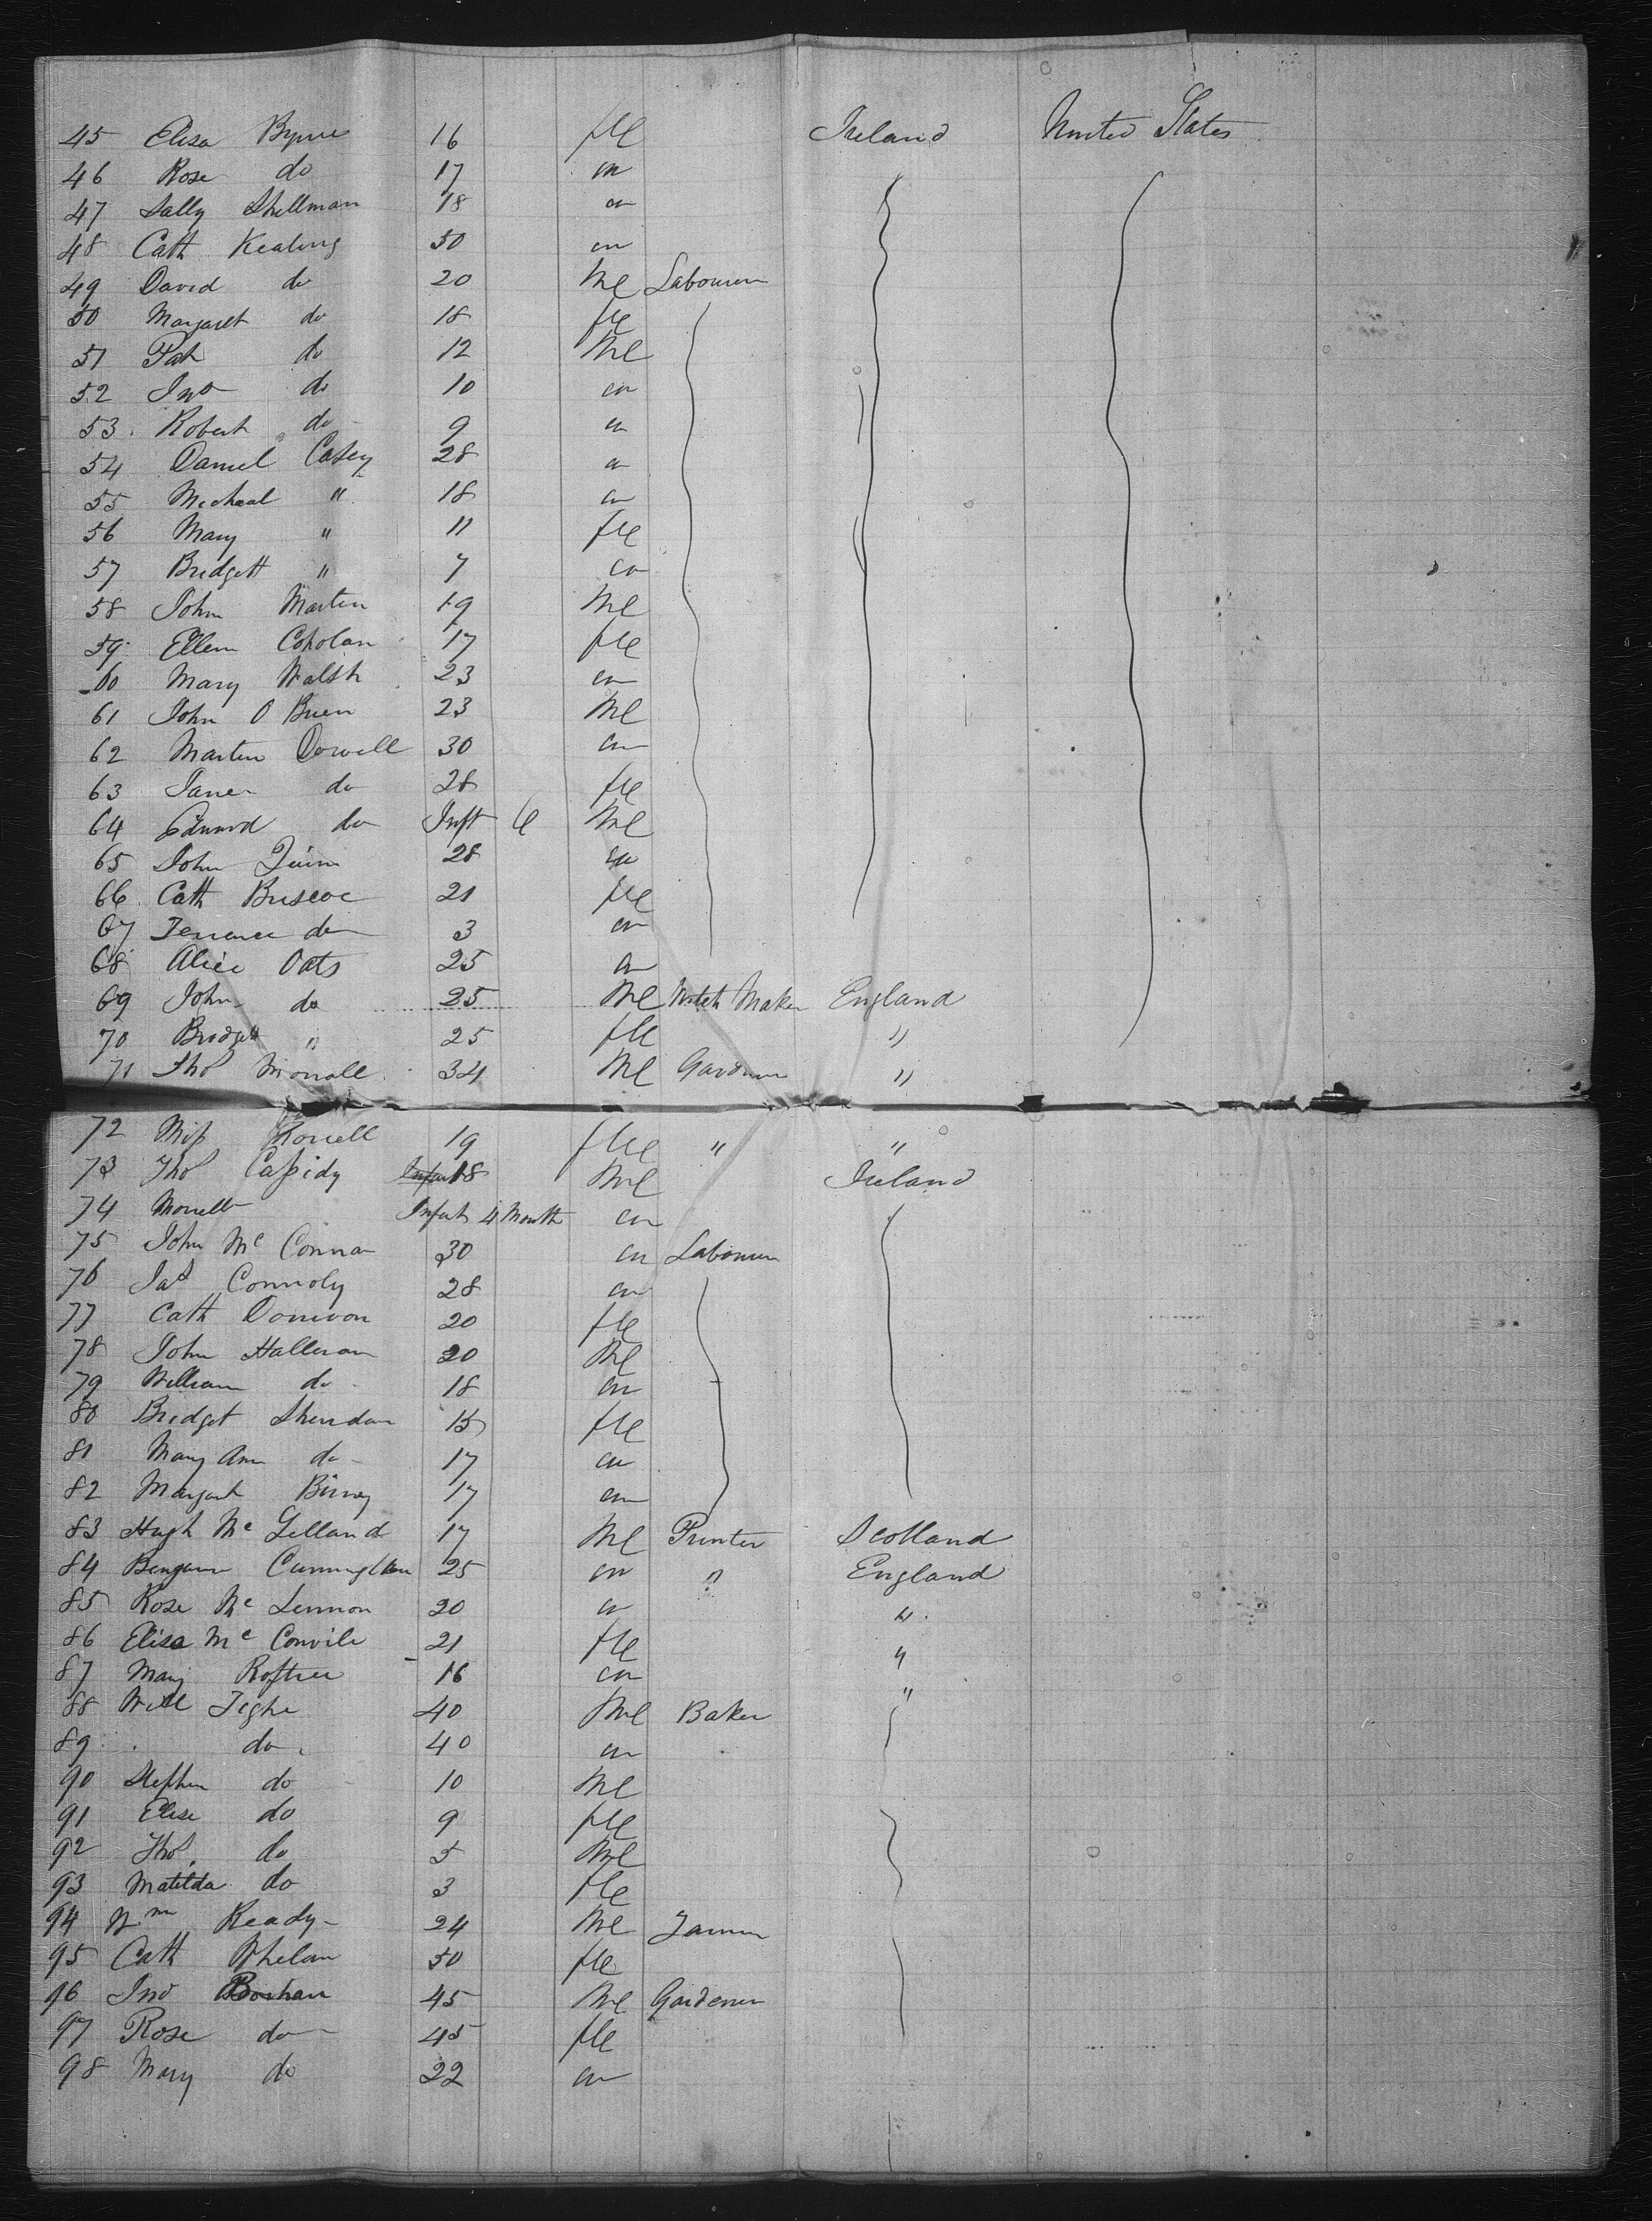 45 Elisa Byrne 16 fle Ireland United States
46 Rose do 17 "
47 Sally Shellman 18 "
48 Cath Keating 50 "
49 David do 20 Ml Labourer
50 Margaret do 18 fle
51 Pat do 12 Ml
52 Jno do 10 "
53 Robert do 9 "
54 Daniel Casey 28 "
55 Micheal " 18 "
56 Mary " 11 fle
57 Bridgett " 7 "
58 John Martin 19 Ml
59 Ellen Coholan 17 fle
60 Mary Walsh 23 "
61 John O Brien 23 Ml
62 Martin Dowell 30 "
63 Jane do 28 fle
64 Edward do Inft 6 Ml
65 John Quinn 28 "
66 Cath Briscoe 21 fle
67 Terrence do 3 "
68 Alice Oats 25 "
69 John do 25 Ml Watch Maker England
70 Bridgett " 25 fle "
71 Thos 34 Ml Gardner "
72 Miss 19 fle " "
73 Thos Cassidy 18 Ml Ireland
74 Morrell Infat 4 Month "
75 John Mc Conna 30 " Labourer
76 Jas Connoly 28 "
77 Cath Donivon 20 fle
78 John Halleran 20 Ml
79 William do 18 "
80 Bridget Sheridan 15 fle
81 Mary Ann do 17 "
82 Margart Birney 17 "
83 Hugh Mc Lelland 17 Ml Printer Scotland
84 Benjamn Cunningham 25 " " England
85 Rose Mc Lennon 20 " "
86 Elisa Mc Convile 21 fle "
87 Mary 16 " "
88 Will Tighe 40 Ml Baker
89 do 40 "
90 Stephen do 10 Ml
91 Elise do 9 fle
92 Thos do 5 Ml
93 Matilda do 3 fle
94 Wm Ready 24 Ml
95 Cath Whelan 50 fle
96 Jno 45 Ml Gardener
97 Rose do 45 fle
98 Mary do 22 "